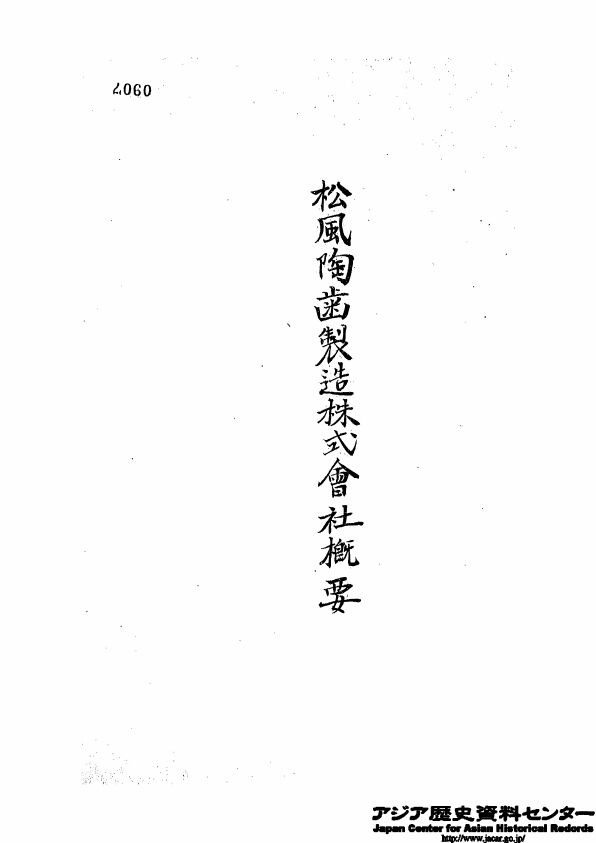 0907
松風陶歯製造株式會社概要
アジア歴史資料センター
Japan Center for Asian Historical Records
http://www.jacar.go.jp/